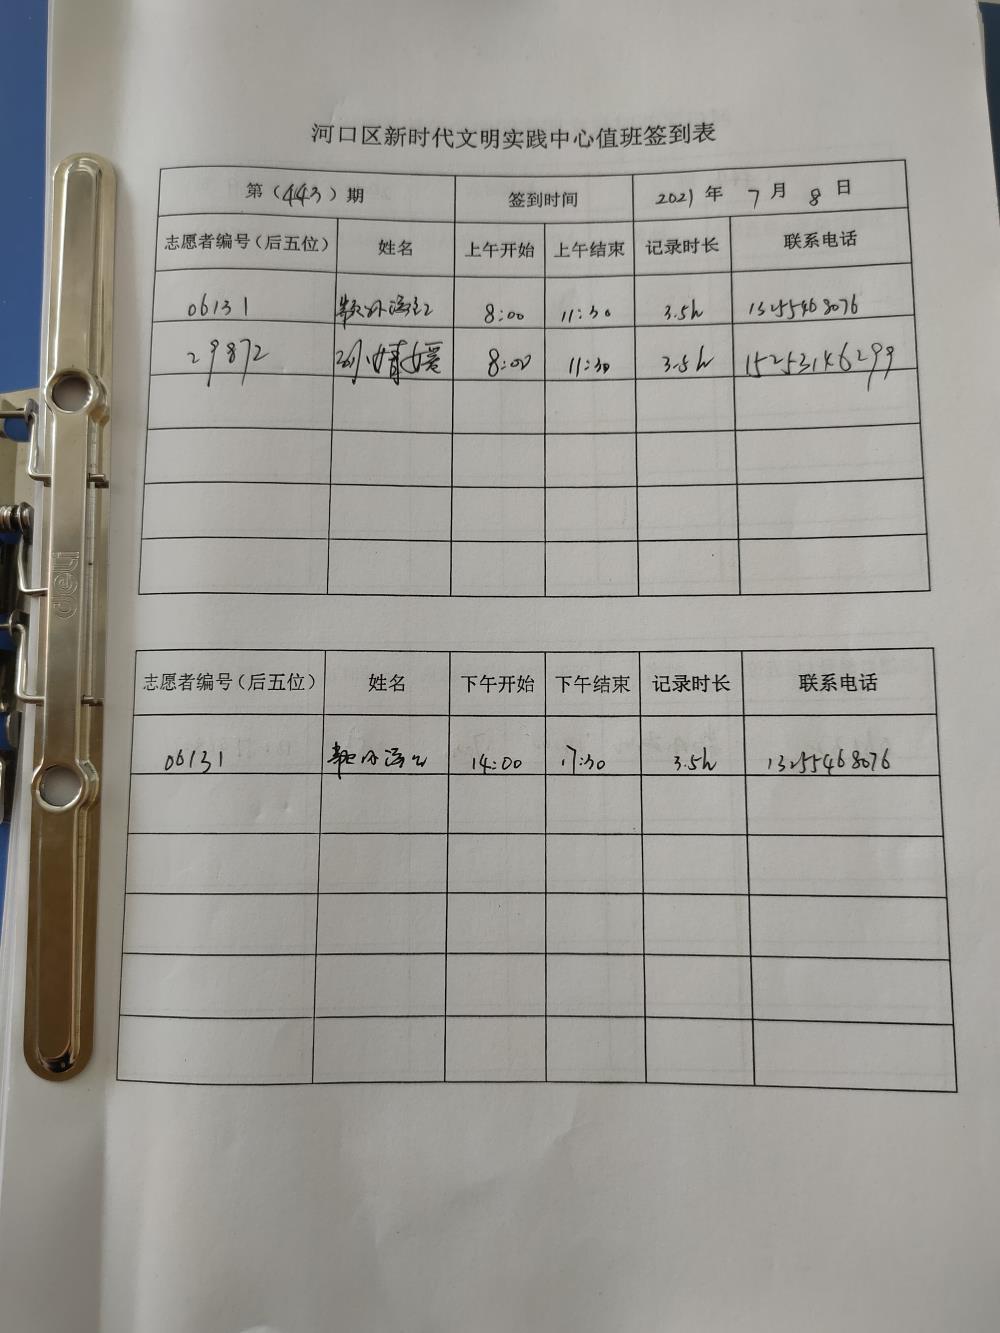 河口区新时代文明实践中心值班签到表
第（443）期 签到时间 2021年 7月 8日
志愿者编号（后五位） 姓名 上午开始 上午结束 记录时长 联系电话
06131 8:00 11:30 3.5h 13255468076
29872 刘婧媛 8:00 11:30 3.5h
志愿者编号（后五位） 姓名 下午开始 下午结束 记录时长 联系电话
06131 14:00 17:30 3.5h 13255468076
deli